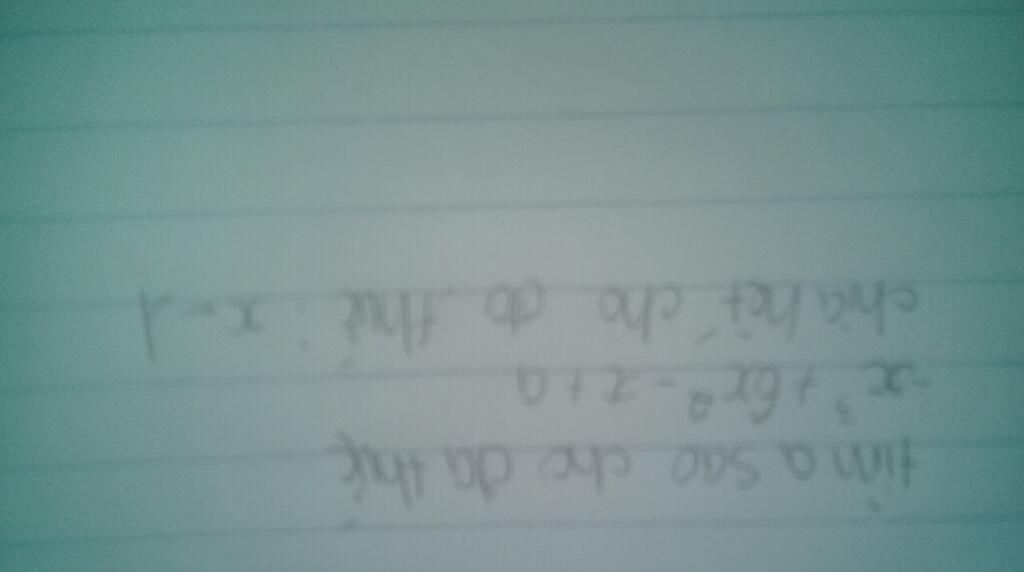 tìm a sao cho đa thức
-x³ + 6x² - x + a
chia hết cho đa thức : x - 1